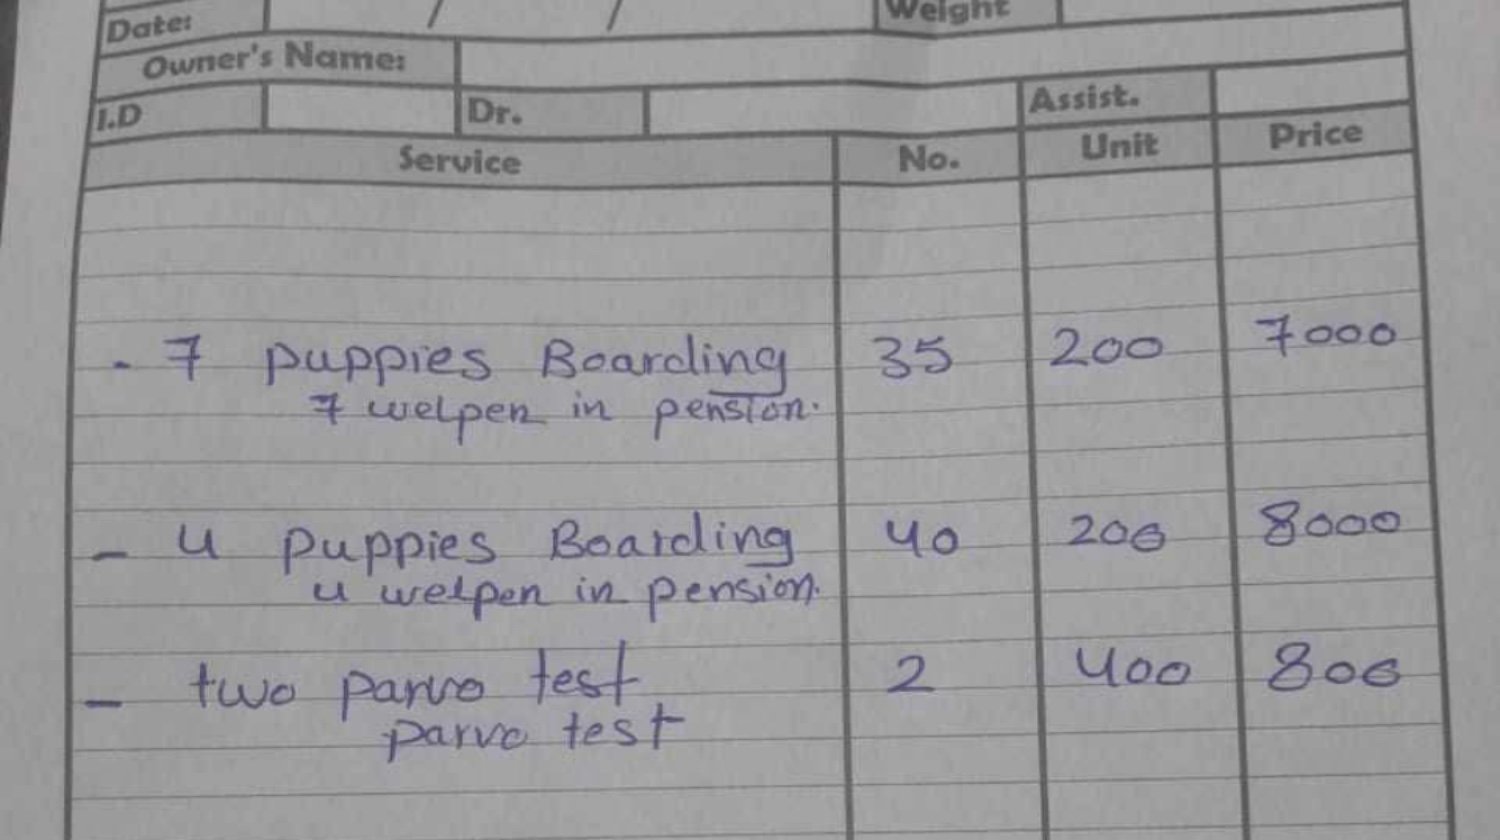 Date: / / Weight
Owner's Name:
I.D Dr. Assist.
Service No. Unit Price
- 7 puppies Boarding 35 200 7000
7 welpen in pension.
- 4 puppies Boarding 40 200 8000
4 welpen in pension.
- two parvo test 2 400 800
parvo test